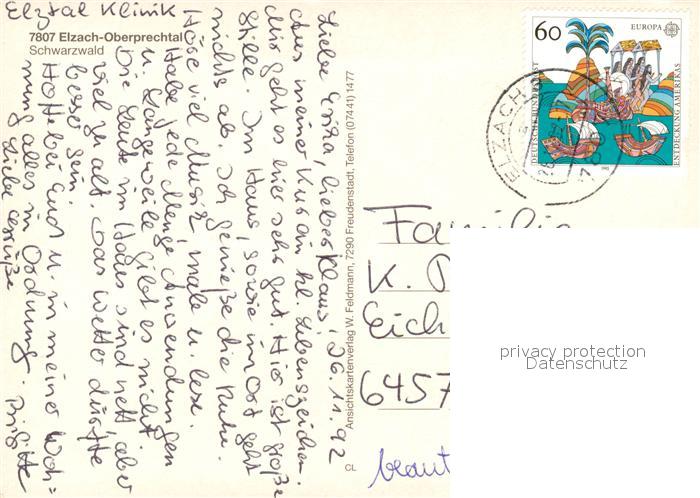 Elztal Klinik
7807 Elzach-Oberprechtal
Schwarzwald
26.11.92
Liebe Erika, lieber Klaus!
Aus meiner Kur ein kl. Lebenszeichen.
Mir geht es hier sehr gut. Hier ist große
Stille. Im Haus, sowie im Ort geht
nichts ab. Ich genieße die Ruhe.
Höre viel Musik, male u. lese.
Habe jede Menge Anwendungen
u. Langeweile gibt es nicht.
Die Leute im Haus sind nett, aber
viel zu alt. Das Wetter dürfte
besser sein.
Hoff bei Euch u. in meiner Woh=
nung alles in Ordnung.
Liebe Grüße Brigitte
CL
Ansichtskartenverlag W. Feldmann, 7290 Freudenstadt, Telefon (07441) 1477
60
EUROPA
DEUTSCHE BUNDESPOST
ENTDECKUNG AMERIKAS
ELZACH
Familie
K.
Eich
6457
privacy protection
Datenschutz